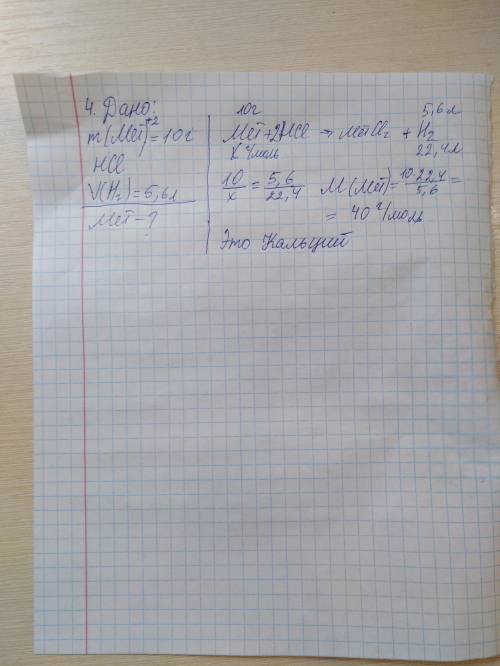 4. Дано:
m(Мет⁺²)=10г
HCl
V(H₂)=5,6л
Мет-?
10г 5,6л
Мет+2HCl → метCl₂ + H₂
x г/моль 22,4л
10/x = 5,6/22,4 M(Мет)= 10·22,4/5,6 =
= 40 г/моль
Это Кальций